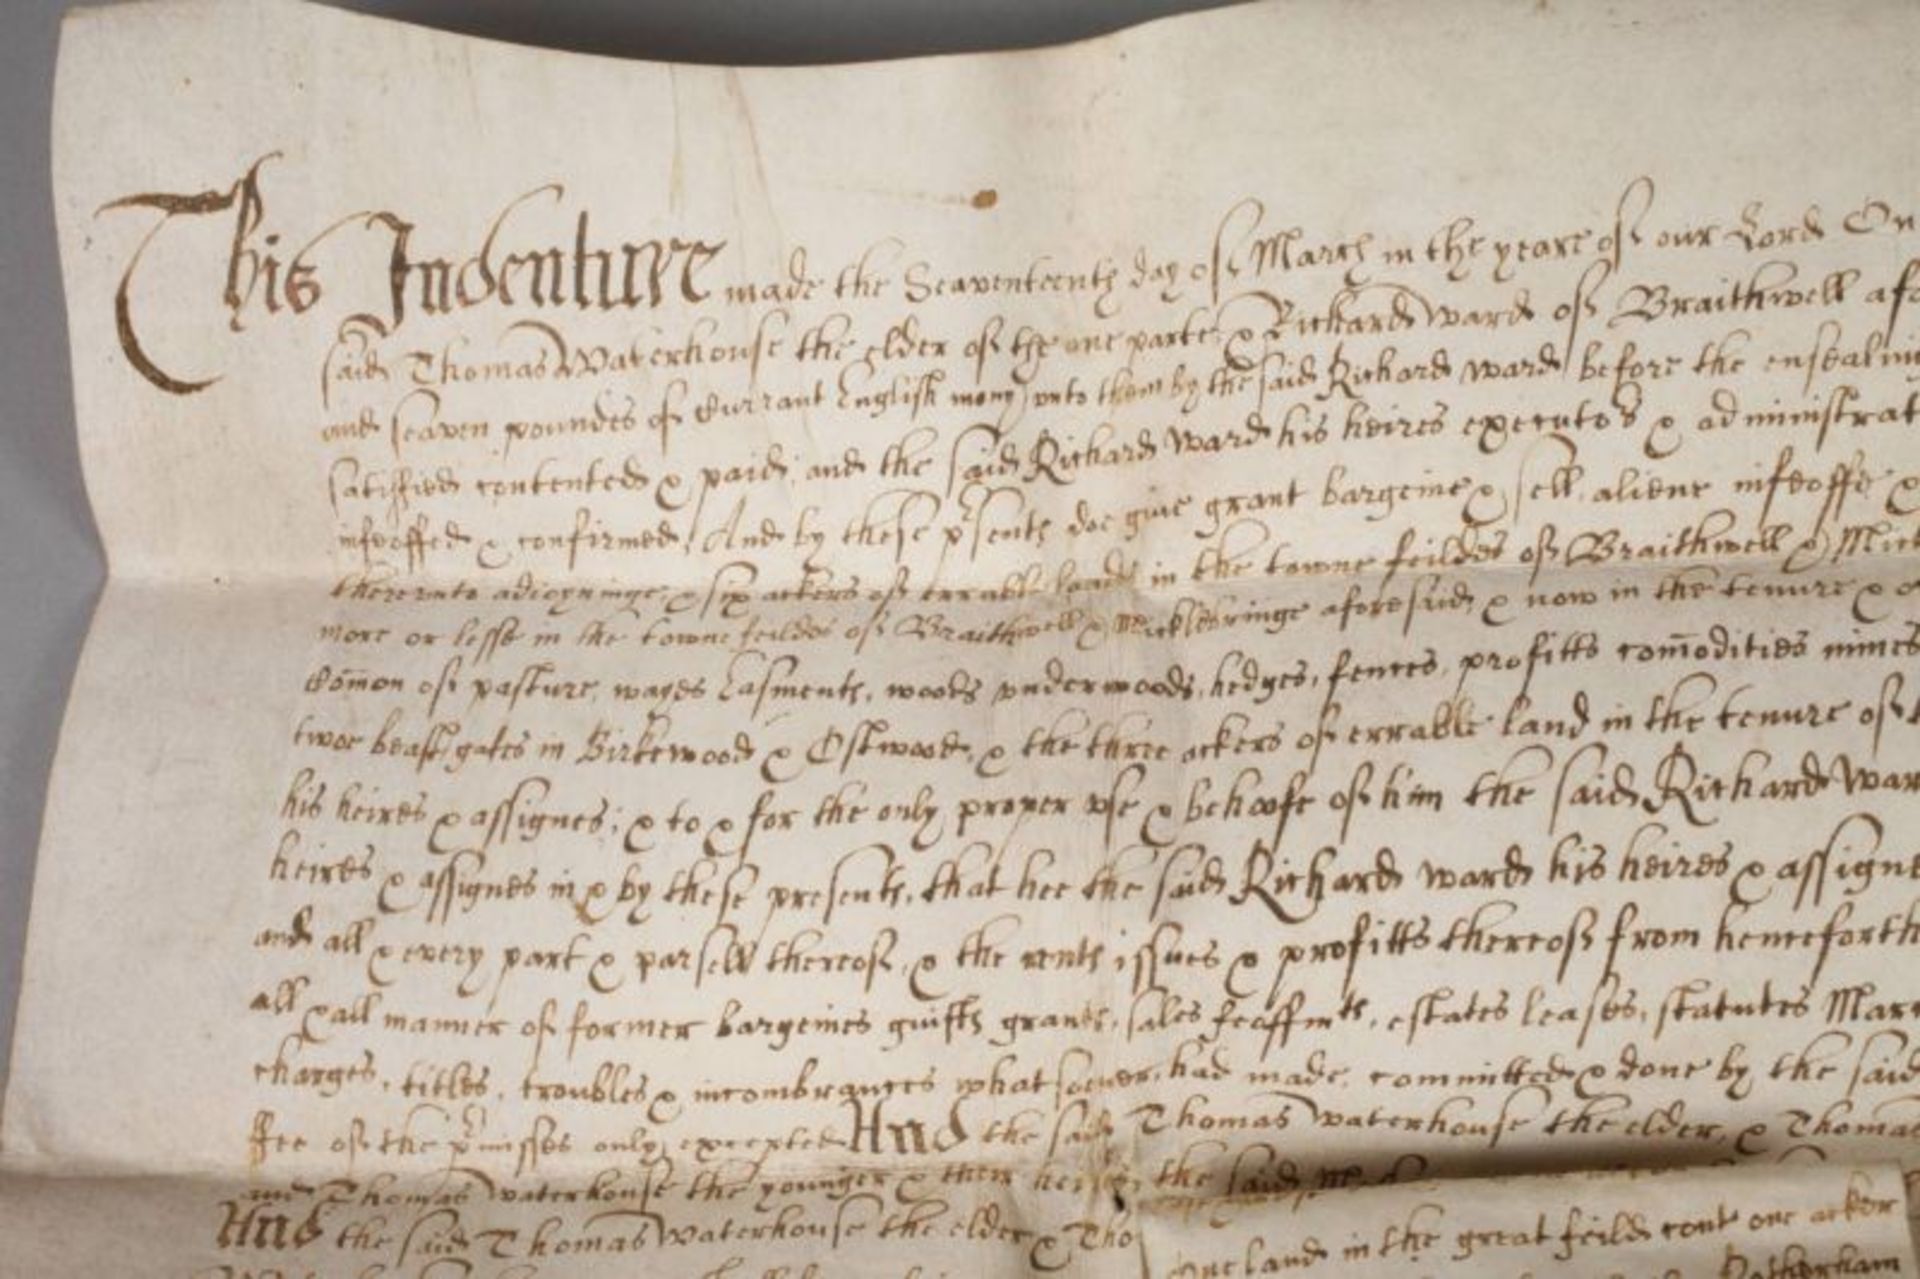 This Indenture made the Seaventeenth day of March in the yeare of our Lord On
said Thomas Waterhouse the elder of the one parte & Richard Ward of Braithwell afo
and seaven poundes of Currant English mony unto them by the said Richard Ward before the ensealing
satisfied contented & paid, and the said Richard Ward his heires executors & administrat
infeoffed & confirmed, And by these psents doe give grant bargeine & sell, aliene infeoffe &
thereunto adioyninge, & six ackers of errable land in the towne feildes of Braithwell & Mick
more or lesse in the towne feildes of Braithwell & Micklebringe aforesaid, & now in the tenure & o
Comon of pasture, wayes Easments, woods vnderwoods, hedges, fences, profitts comodities mines
twoe beast gates in Birkewood & Ostwood, & the three ackers of errable land in the tenure of
his heires & assignes; & to & for the only proper vse & behoofe of him the said Richard War
heires & assignes in & by these presents, that hee the said Richard Ward his heires & assigne
and all & every part & parsell thereof, & the rents issues & profitts thereof from henceforth
all & all manner of former bargeines guifts grants, sales feoffmts, estates leases, statutes Mar
charges, titles, troubles & incombrances whatsoever, had made, committed & done by the said
fee of the pmisses only excepted And the said Thomas Waterhouse the elder, & Thomas
and Thomas Waterhouse the younger & their heires the said
And the said Thomas Waterhouse the elder & Tho
one land in the great feild cont one acker
Rotherham